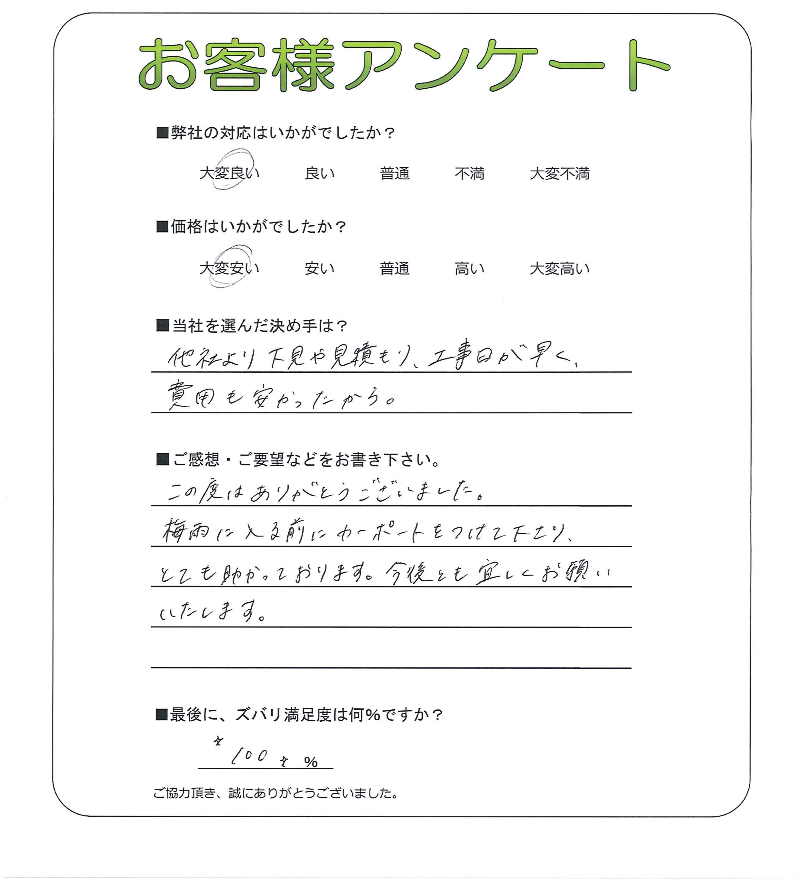 お客様アンケート
■弊社の対応はいかがでしたか？
大変良い 良い 普通 不満 大変不満
■価格はいかがでしたか？
大変安い 安い 普通 高い 大変高い
■当社を選んだ決め手は？
他社より下見や見積もり、工事日が早く、
費用も安かったから。
■ご感想・ご要望などをお書き下さい。
この度はありがとうございました。
梅雨に入る前にカーポートをつけて下さり、
とても助かっております。今後とも宜しくお願い
いたします。
■最後に、ズバリ満足度は何％ですか？
100 ％
ご協力頂き、誠にありがとうございました。